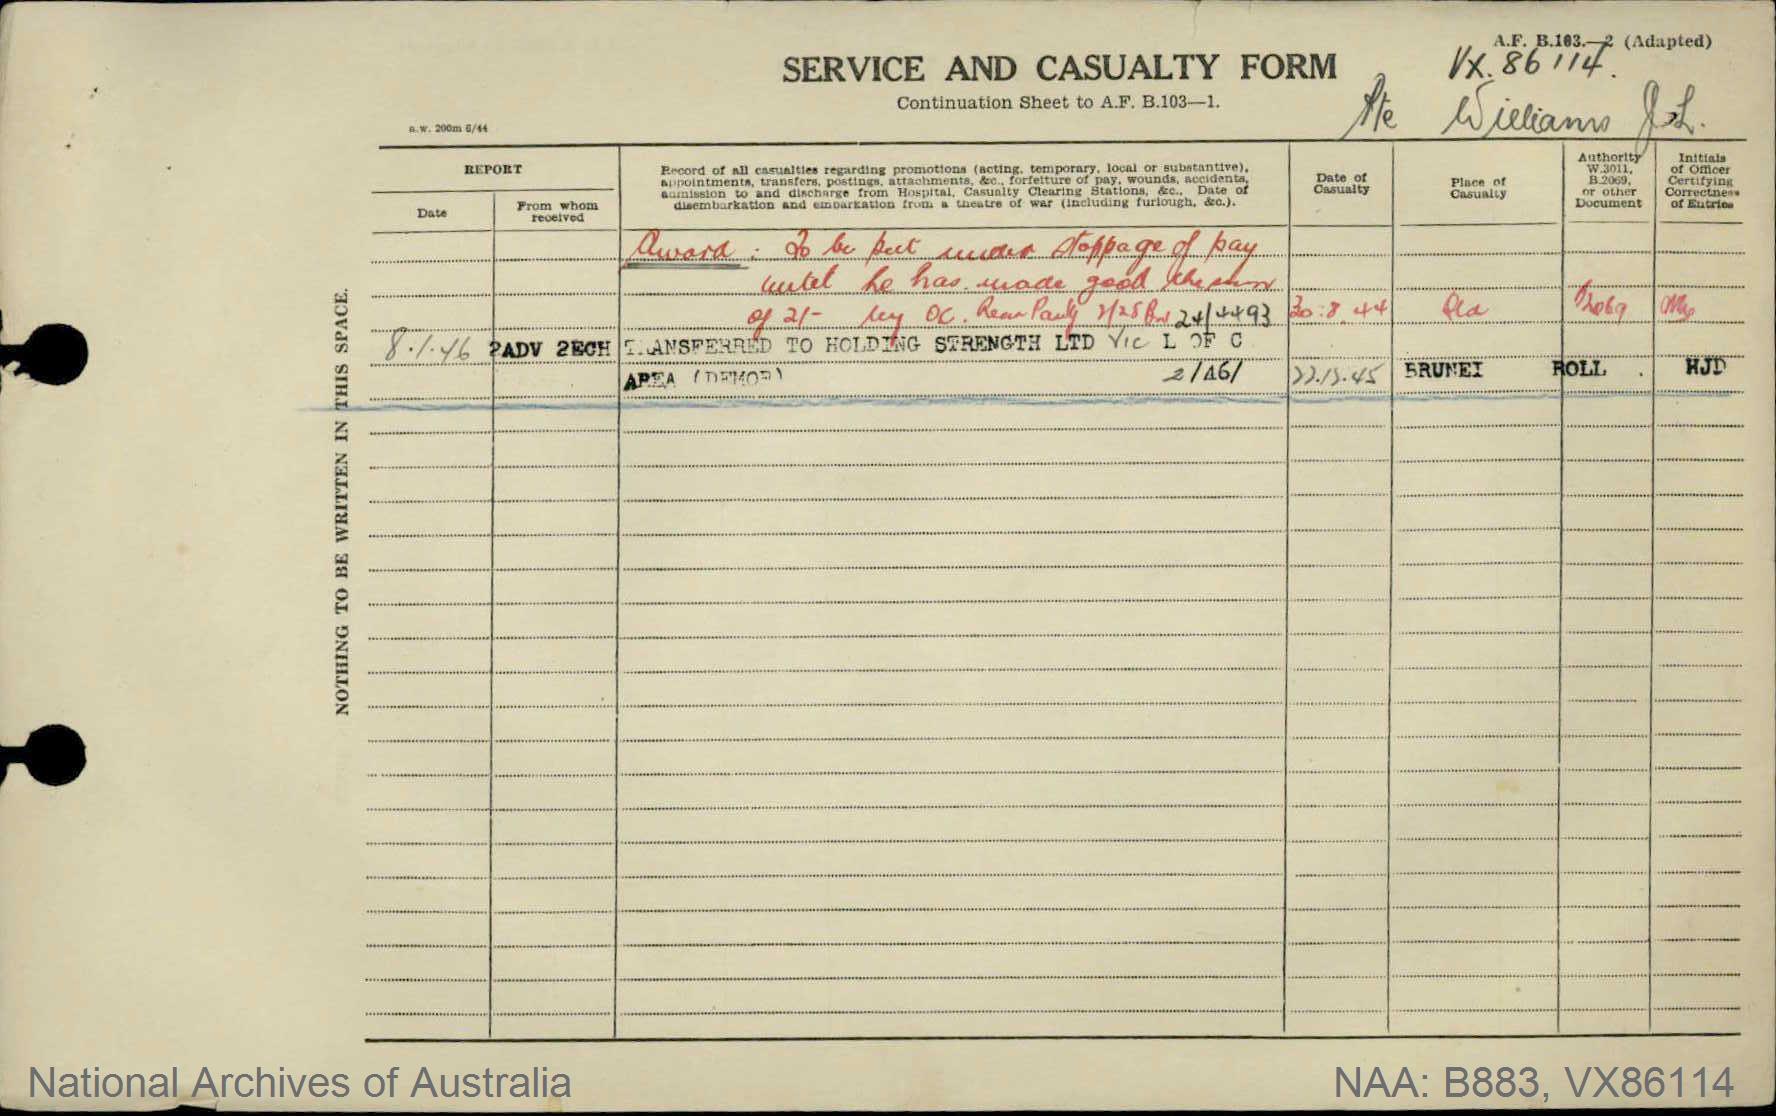 A.F. B.103.—2 (Adapted)
VX.86114.
SERVICE AND CASUALTY FORM
Continuation Sheet to A.F. B.103—1.
Pte Williams J.L.
a.w. 200m 6/44
REPORT
Date
From whom received
Record of all casualties regarding promotions (acting, temporary, local or substantive),
appointments, transfers, postings, attachments, &c., forfeiture of pay, wounds, accidents,
admission to and discharge from Hospital, Casualty Clearing Stations, &c., Date of
disembarkation and embarkation from a theatre of war (including furlough, &c.).
Date of Casualty
Place of Casualty
Authority W.3011, B.2069, or other Document
Initials of Officer Certifying Correctness of Entries
Award: To be put under stoppage of pay
until he has made good the sum
of 2/- by OC. Rear Party 2/28 Bn 24/4493 30.8.44 Qld B2069
8.1.46 2ADV 2ECH TRANSFERRED TO HOLDING STRENGTH LTD Vic L OF C
AREA (DEMOB) 2/A61 22.12.45 BRUNEI ROLL . HJD
NOTHING TO BE WRITTEN IN THIS SPACE.
National Archives of Australia
NAA: B883, VX86114